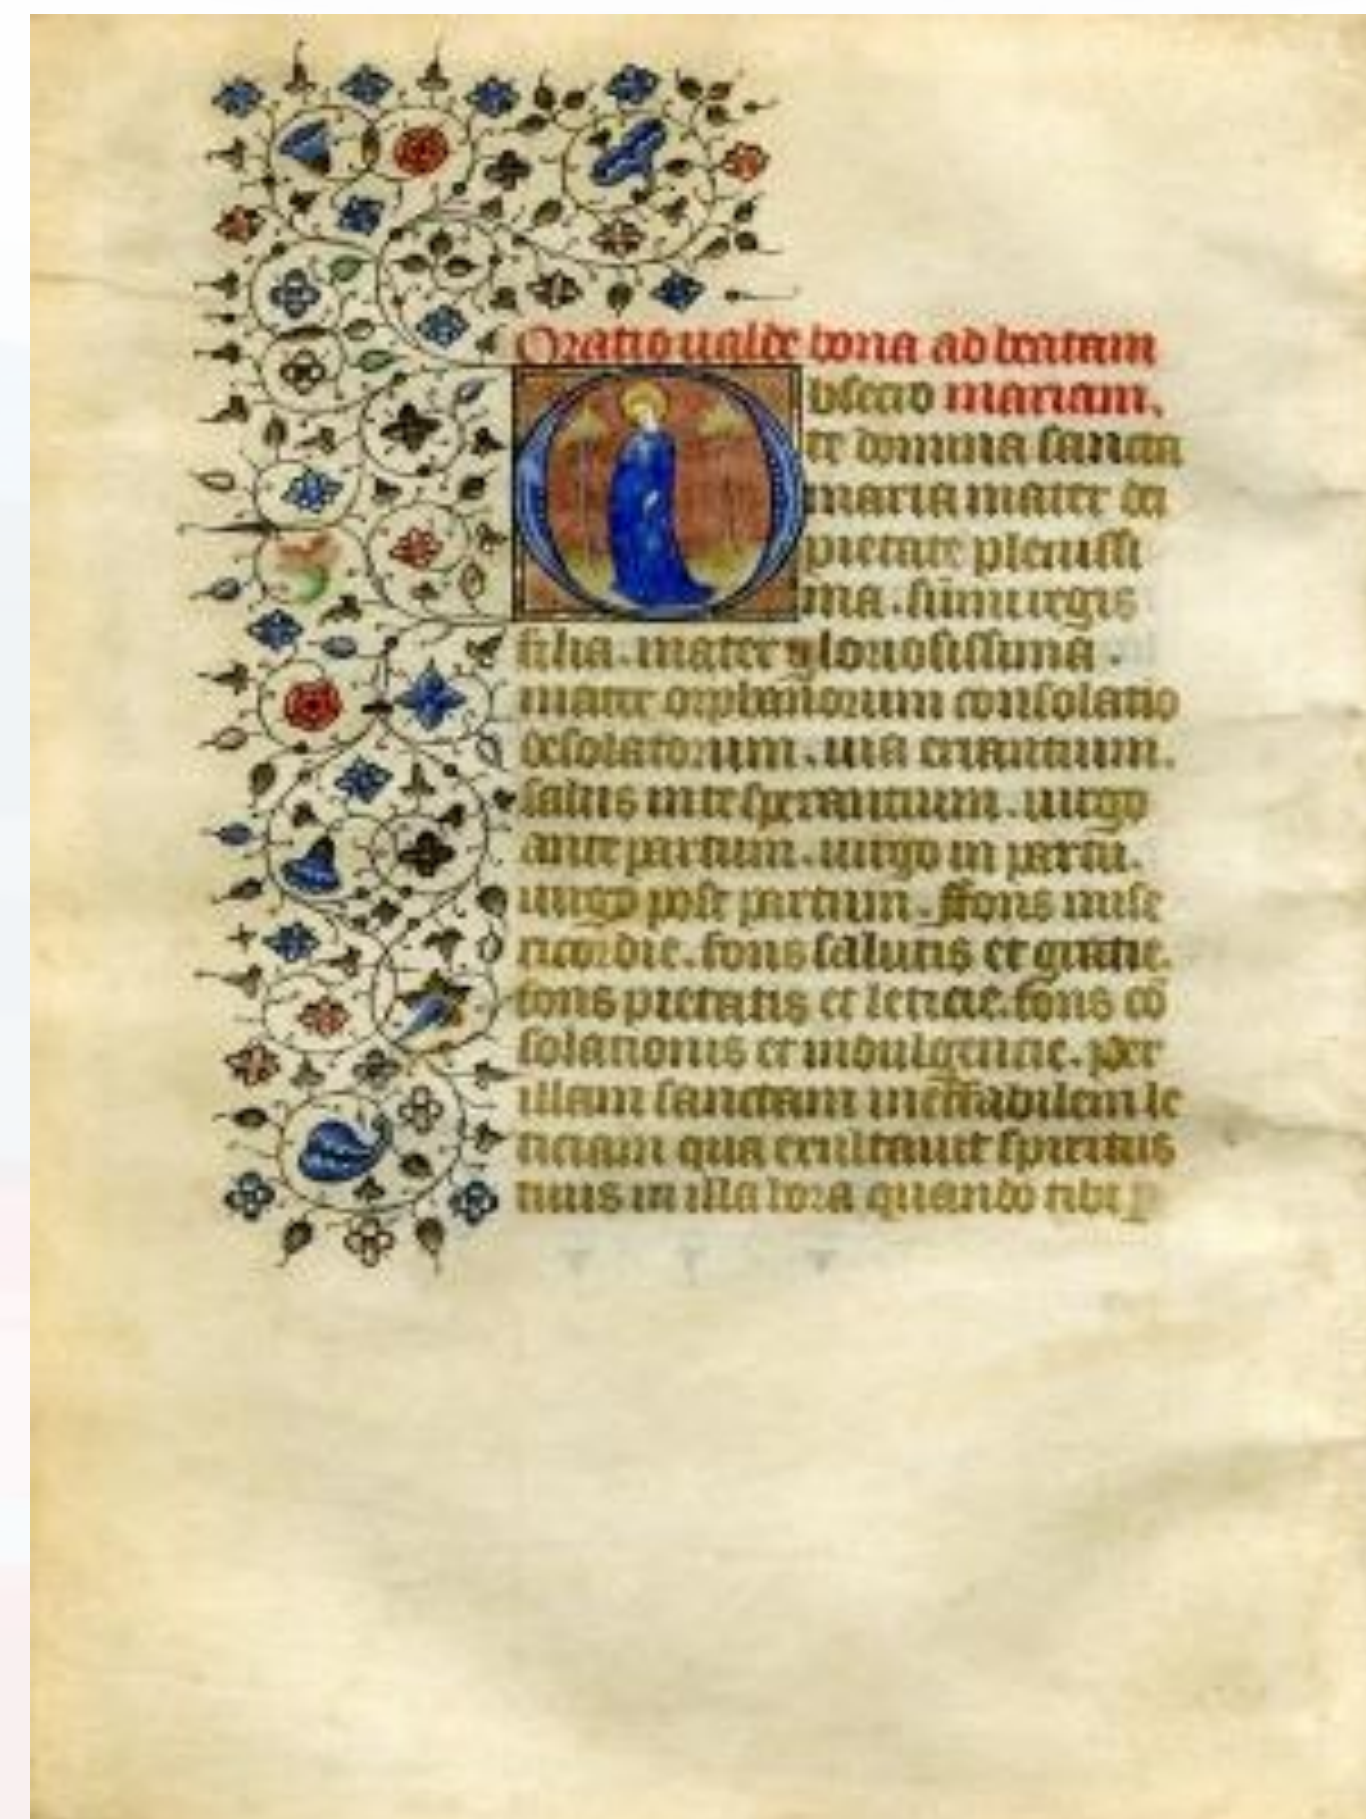 Oratio valde bona ad beatam
bsecro mariam.
te domina sancta
maria mater dei
pietate plenissi
ma. summi regis
filia. mater gloriosissima.
mater orphanorum consolatio
desolatorum. via errantium.
salus in te sperantium. virgo
ante partum. virgo in partu.
virgo post partum. ffons mise
ricordie. fons salutis et gratie.
fons pietatis et leticie. fons cō
solationis et indulgencie. per
illam sanctam ineffabilem le
ticiam qua exultavit spiritus
tuus in illa hora quando tibi p